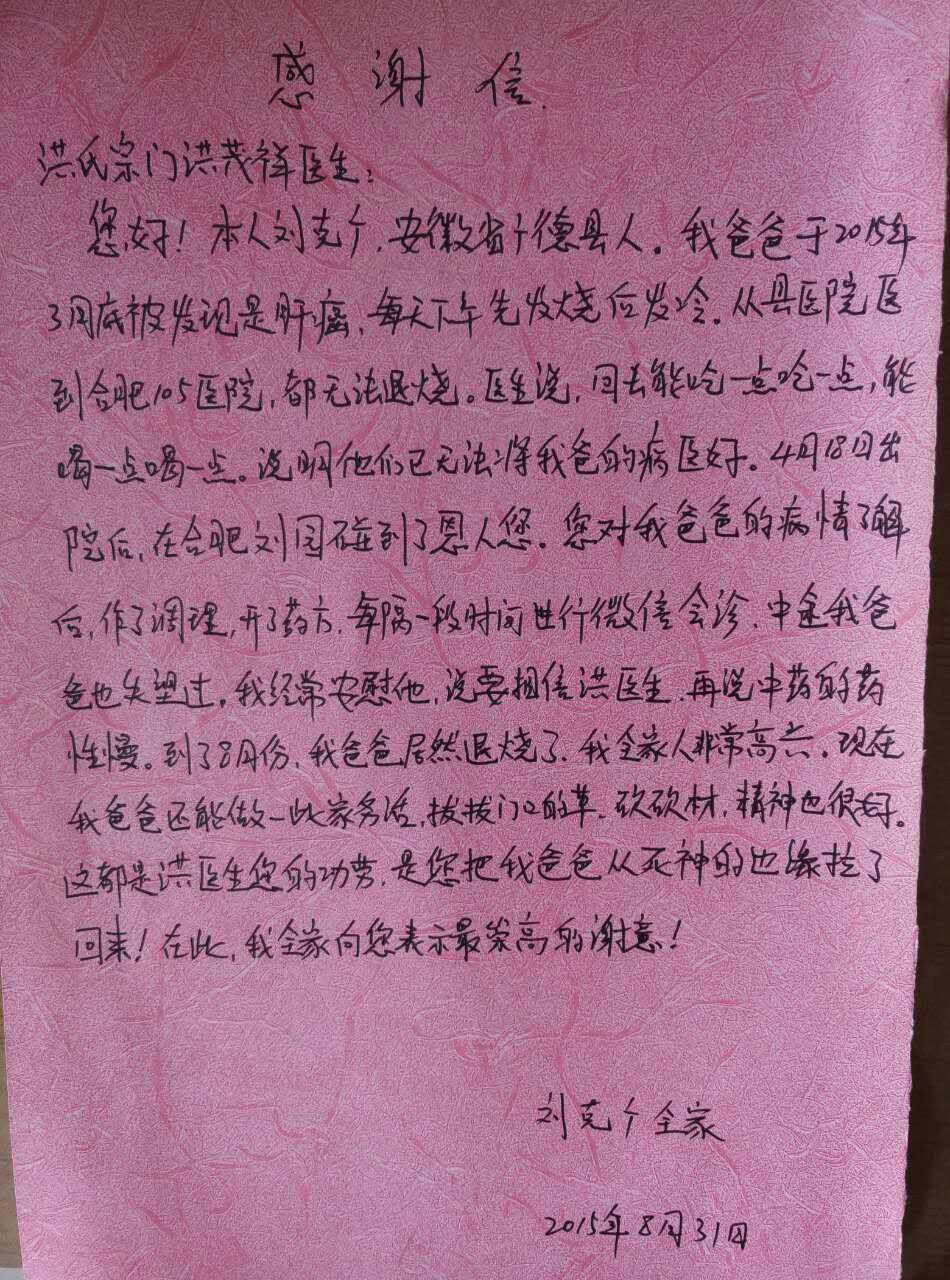 感谢信.
洪氏宗门洪茂祥医生:
您好!本人刘克个,安徽省广德县人。我爸爸于2015年
3月底被发现是肝癌,每天下午先发烧后发冷。从县医院医
到合肥105医院,都无法退烧。医生说,回去能吃一点吃一点,能
喝一点喝一点。说明他们已无法将我爸的病医好。4月18日出
院后,在合肥刘园碰到了恩人您。您对我爸爸的病情了解
后,作了调理,开了药方,每隔一段时间进行微信会诊.中途我爸
爸也失望过。我经常安慰他,说要相信洪医生.再说中药的药
性慢。到了8月份,我爸爸居然退烧了.我全家人非常高兴。现在
我爸爸还能做一些家务活,拔拔门口的草.砍砍材,精神也很好。
这都是洪医生您的功劳.是您把我爸爸从死神的边缘拉了
回来!在此,我全家向您表示最崇高的谢意!
刘克个全家
2015年8月31日